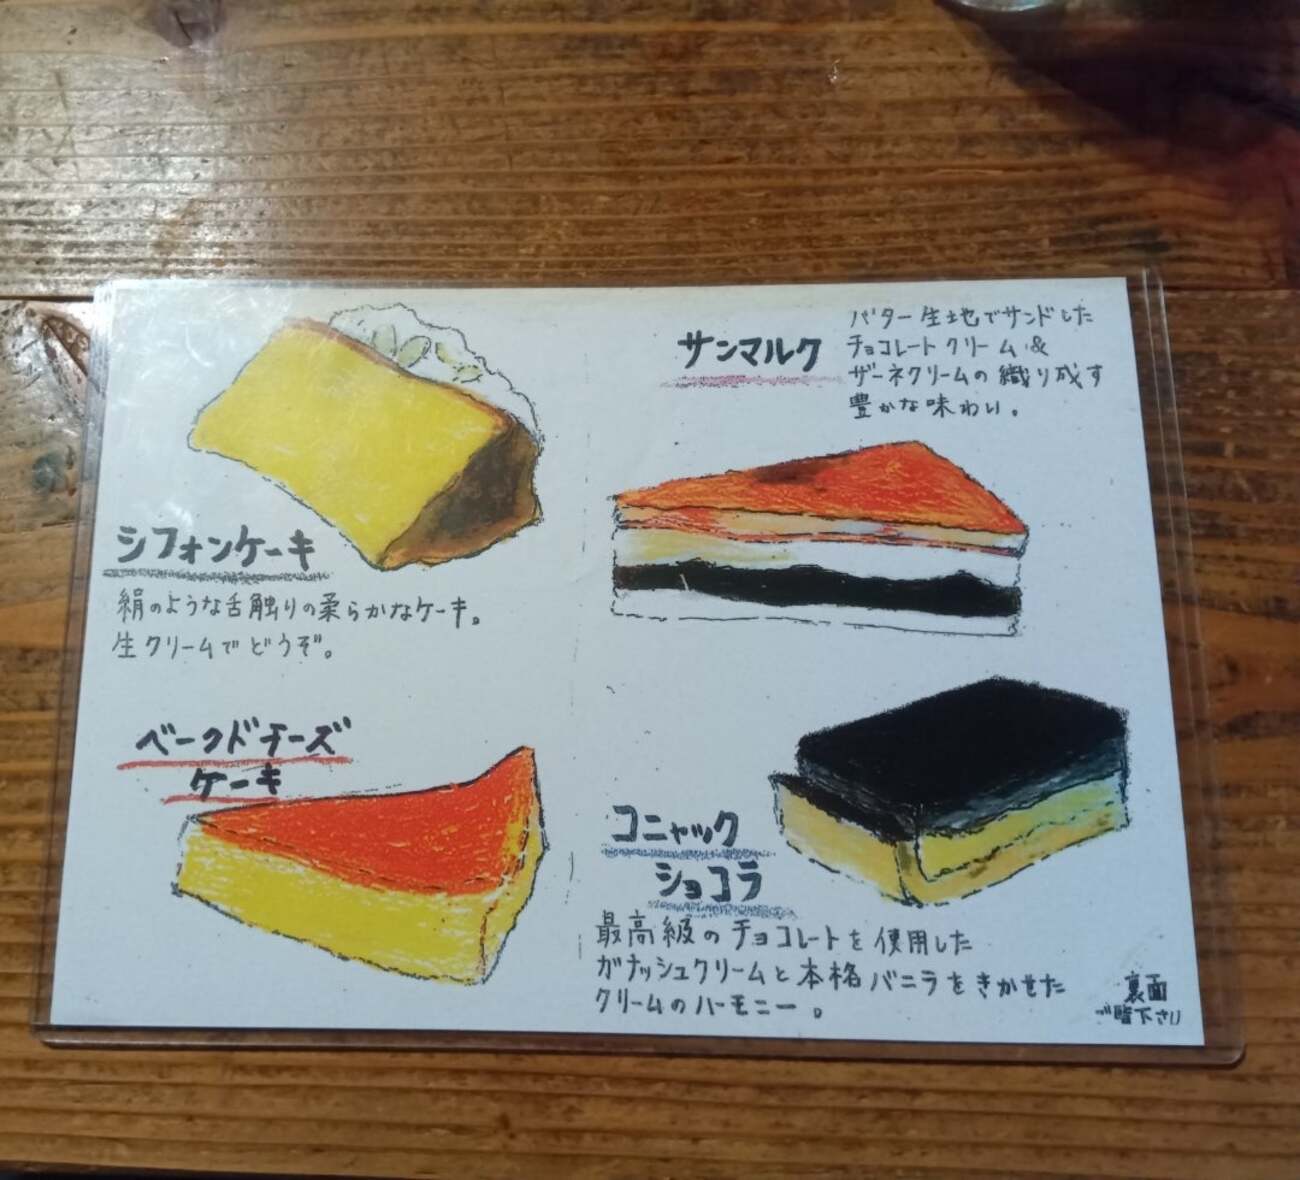 シフォンケーキ
絹のような舌触りの柔らかなケーキ。
生クリームでどうぞ。
サンマルク
バター生地でサンドした
チョコレートクリーム&
ザーネクリームの織り成す
豊かな味わい。
ベークドチーズ
ケーキ
コニャック
ショコラ
最高級のチョコレートを使用した
ガナッシュクリームと本格バニラをきかせた
クリームのハーモニー。
裏面
ご覧下さい